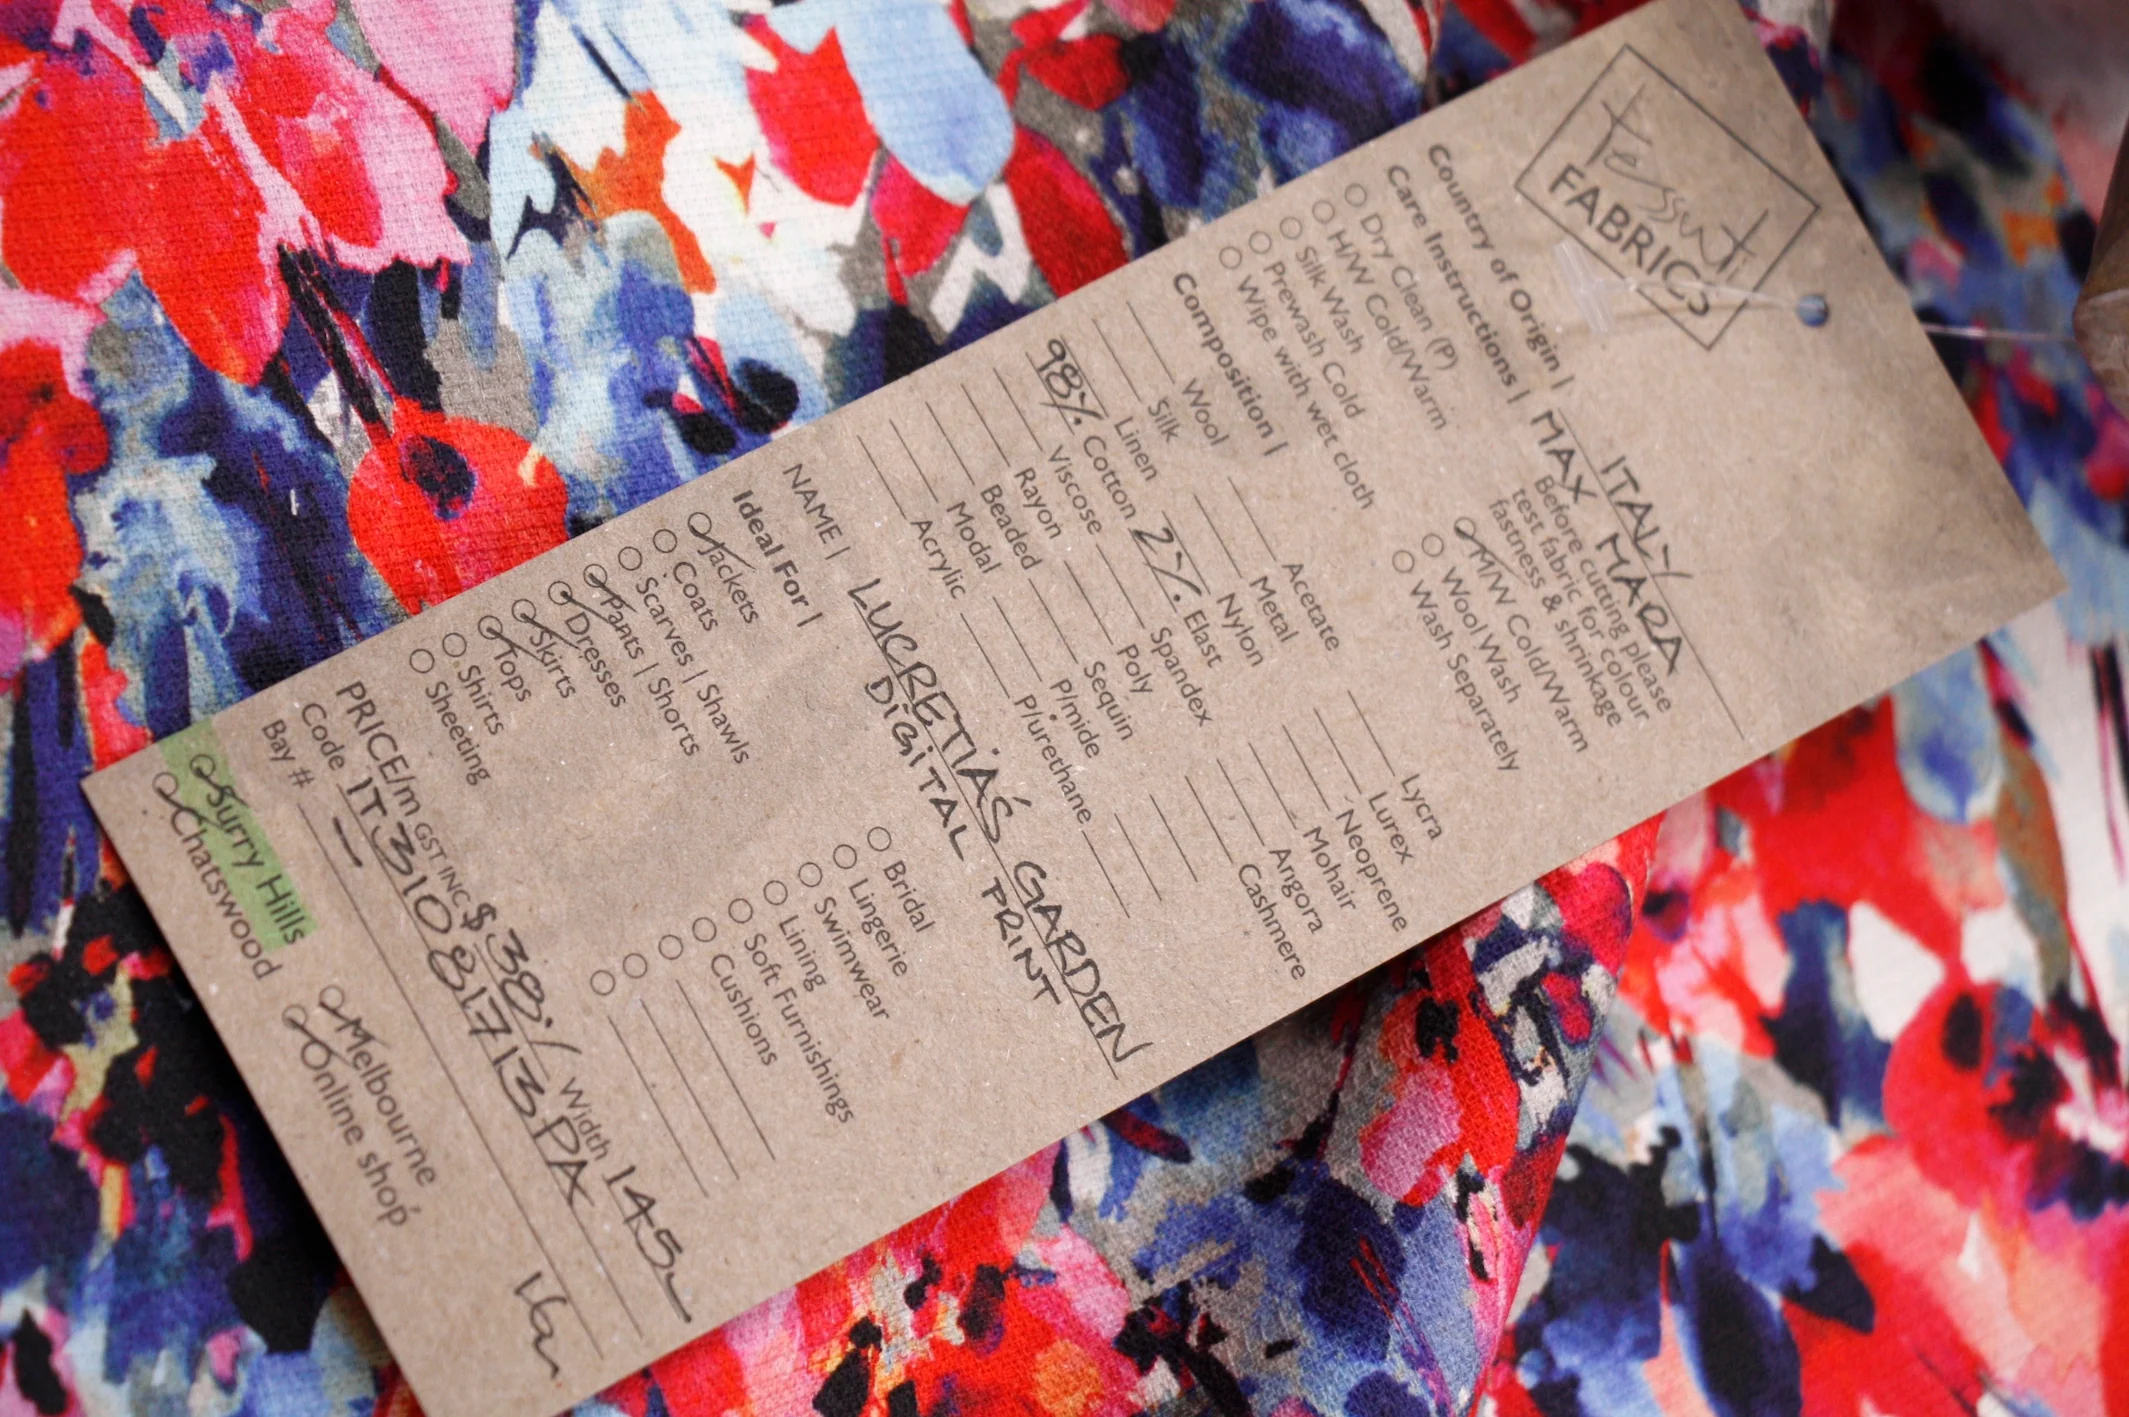 tessuti
FABRICS
Country of Origin | ITALY
MAX MARA
Care Instructions | Before cutting please
test fabric for colour
fastness & shrinkage
Dry Clean (P)
H/W Cold/Warm
Silk Wash
Prewash Cold
Wipe with wet cloth
M/W Cold/Warm
Wool Wash
Wash Separately
Composition |
Wool Acetate Lycra
Silk Metal Lurex
Linen Nylon Neoprene
98% Cotton 2% Elast Mohair
Viscose Spandex Angora
Rayon Poly Cashmere
Beaded Sequin
Modal P/mide
Acrylic P/urethane
NAME | LUCRETIA'S GARDEN
DIGITAL PRINT
Ideal For |
Jackets Bridal
Coats Lingerie
Scarves | Shawls Swimwear
Pants | Shorts Lining
Dresses Soft Furnishings
Skirts Cushions
Tops
Shirts
Sheeting
PRICE/m GST INC $38./ Width 145
Code IT31081713PA
Bay # -
Surry Hills Melbourne
Chatswood Online shop